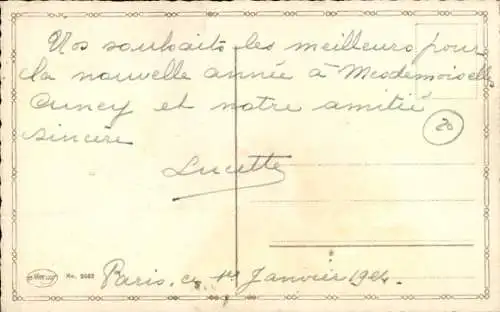 Nos souhaits les meilleurs pour
la nouvelle année à Mesdemoiselles
Cuney et notre amitié
sincère
20
Lucette
No.
Paris. ce 1er Janvier